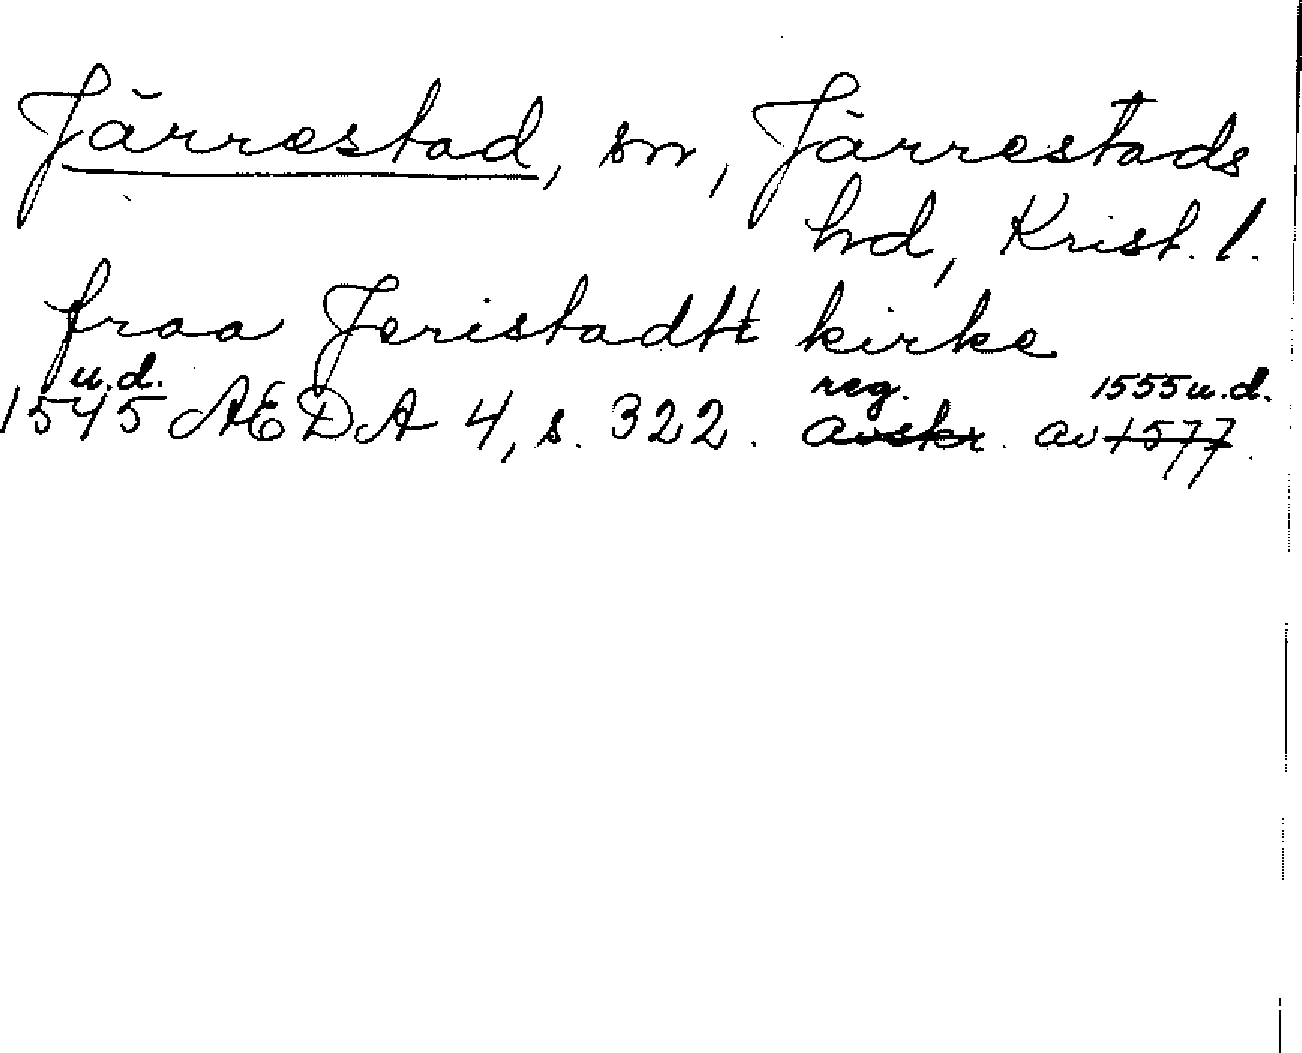 Järrestad, sn, Järrestads
hd, Krist. l.
fraa Jeristadtt kirke
u.d. reg. 1555 u.d.
1545 AEDA 4, s. 322. avskr. av 1577.